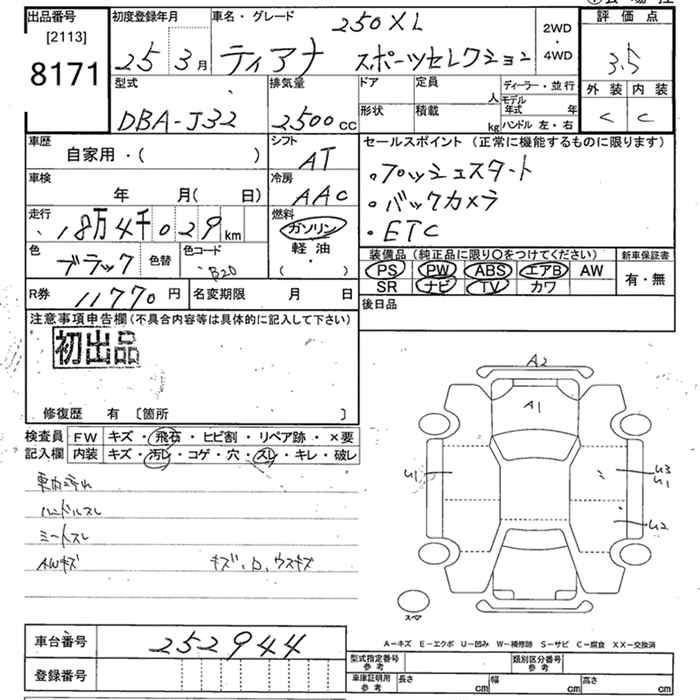 出品番号
[2113]
8171
初度登録年月
25 3月
車名・グレード
250XL
ティアナ スポーツセレクション
2WD
・
4WD
評価点
3.5
外装 内装
C C
型式
DBA-J32
排気量
2500cc
ドア
形状
定員
人
積載
kg
ディーラー・並行
モデル年式 年
ハンドル 左・右
車歴
自家用・( )
シフト
AT
車検
年 月( 日)
冷房
AAC
走行
18万4千029km
燃料
ガソリン
軽・油
( ・ )
色
ブラック
色替
色コード
B20
R券
11770円
名変期限 月 日
セールスポイント(正常に機能するものに限ります)
・プッシュスタート
・バックカメラ
・ETC
装備品(純正品に限り○をつけてください)
PS PW ABS エアB AW
SR ナビ TV カワ
新車保証書
有・無
後日品
注意事項申告欄(不具合内容等は具体的に記入して下さい)
初出品
修復歴 有 〔箇所 〕
検査員
記入欄
FW キズ・飛石・ヒビ割・リペア跡・×要
内装 キズ・汚レ・コゲ・穴・スレ・キレ・破レ
車内汚れ
ハンドルスレ
シートスレ
AWキズ
キズ、凹、ウスキズ
A2
A1
U1
U3
U1
U2
スペア
A-キズ E-エクボ U-凹み W-補修跡 S-サビ C-腐食 XX-交換済
車台番号
252944
登録番号
型式指定番号
参考
類別区分番号
参考
車庫証明用
参考
長さ cm
幅 cm
高さ cm